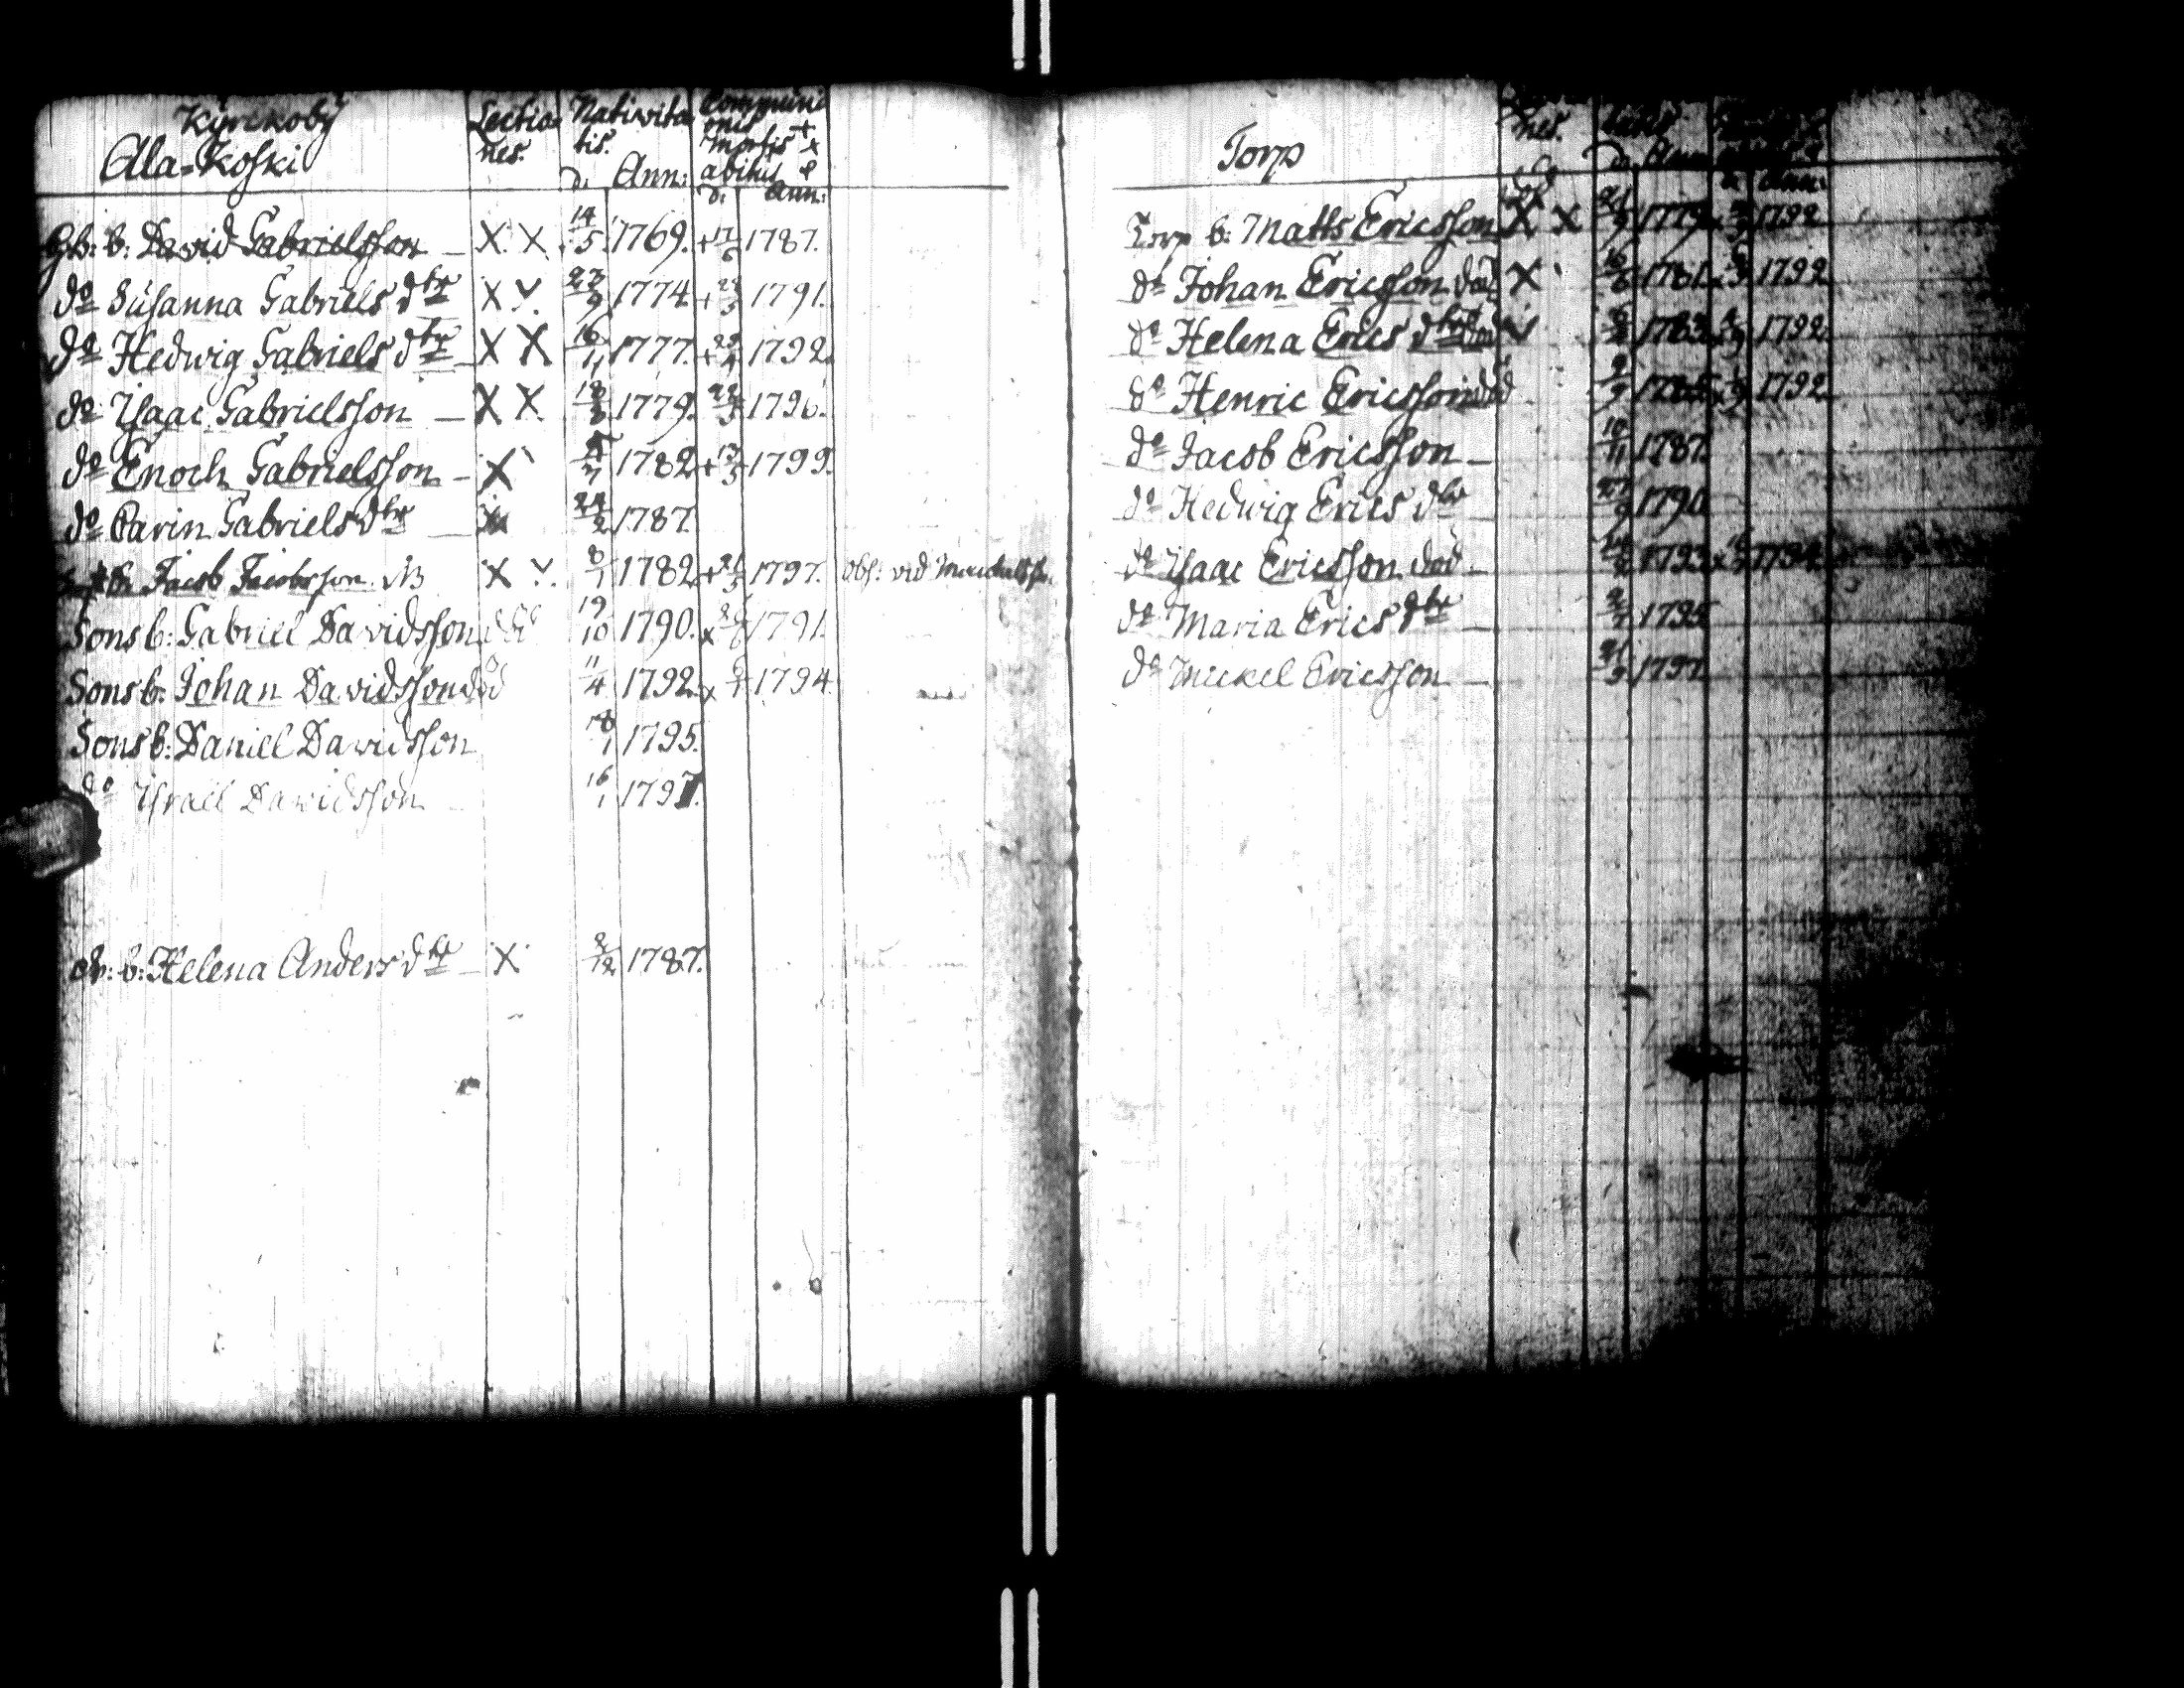 Kyrckoby
Ala-Koski
Lectio nes.
Nativita tis.
d. Ann:
Communi onis + mortis x abitus
d. Ann:
Gb: b: David Gabrielsson X X 14/5 1769. + 17/6 1787.
do Susanna Gabriels dtr X X 1774 + 1791.
do Hedwig Gabriels dtr X X 16/11 1777. + 1792.
do Isaac Gabrielsson X X 1779. 1796.
do Enoch Gabrielsson X 1782 + 1799.
do Carin Gabriels dtr 24/2 1787
Jacob Jacobsson. NB X 8/1 1782 + 1797. obs: vid
Sons b: Gabriel Davidsson död 19/10 1790. x 1791.
Sons b: Johan Davidsson död 11/4 1792. x 1794
Sons b: Daniel Davidsson 18/1 1795.
do Israel Davidsson 16/1 1797.
b: Helena Anders dtr X 1787.
Torp
nes.
Torp b: Matts Ericsson X X 1779 1792
do Johan Ericsson död X 16/6 1781 x 1792
do Helena Erics dtr död 1783 1792
do Henric Ericsson död 1785 x 1792
do Jacob Ericsson 10/11 1787
do Hedwig Erics dtr 27/9 1790
do Isaac Ericsson död 1793 x 1794
do Maria Erics dtr 1795
do Mickel Ericsson 1797